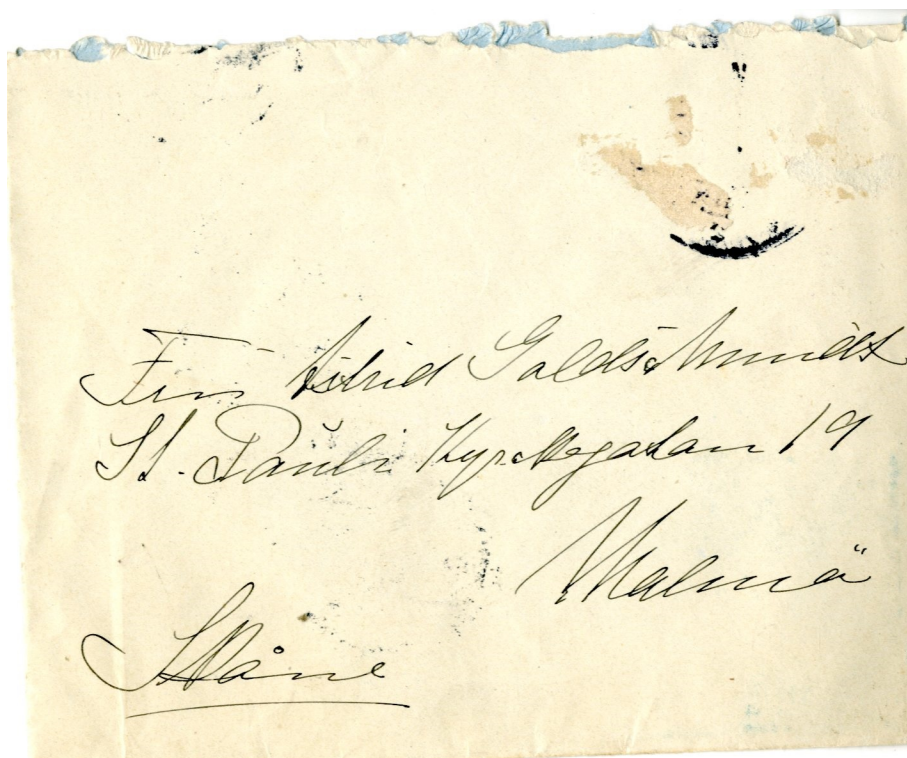 Fru Astrid Goldschmidt
St. Pauli Kyrkogatan 19
Malmö
Skåne